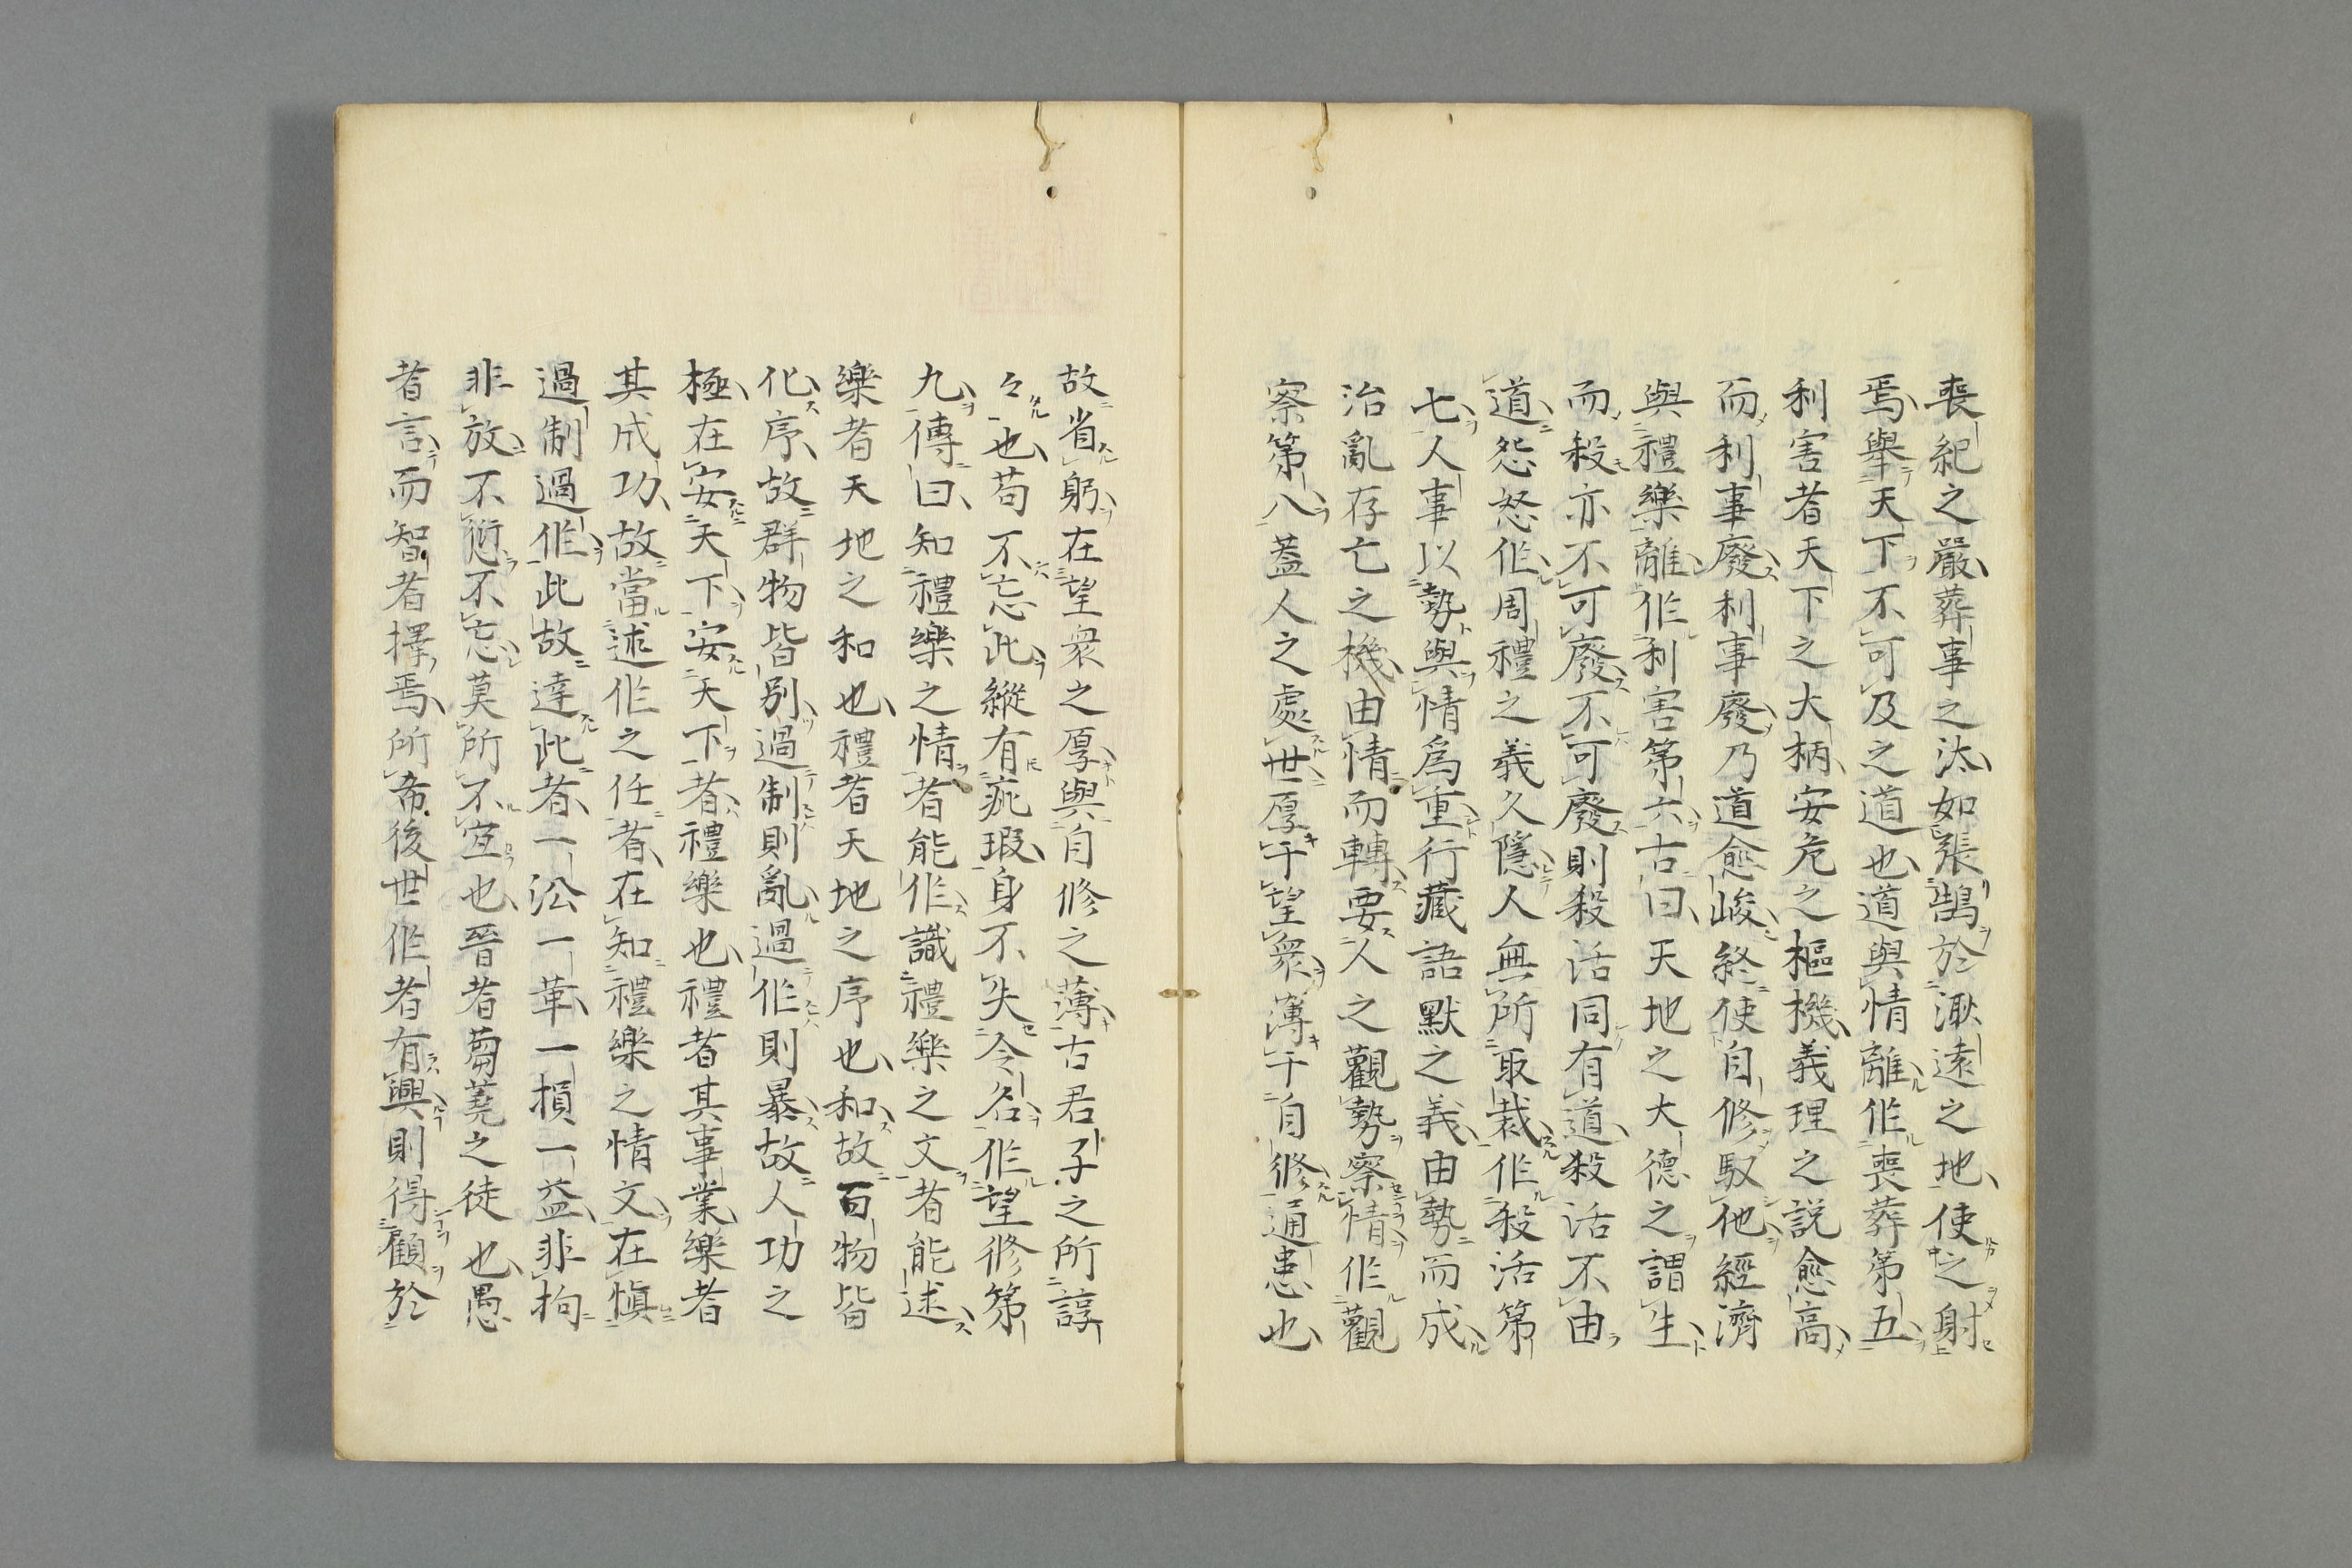 喪紀之嚴葬事之汰如張鵠於溆遠之地使之射
焉舉天下不可及之道也道與情離作喪葬第五
利害者天下之大柄安危之樞機義理之說愈高
而利事廢利事廢乃道愈峻終使自修馭他經濟
與禮樂離作利害第六古曰天地之大德之謂生
而殺亦不可廢不可廢則殺活同有道殺活不由
道怨怒作周禮之義久隱人無所取裁作殺活第
七人事以勢與情爲重行藏語默之義由勢而成
治亂存亡之機由情而轉要人之觀勢察情作觀
察第八蓋人之處世厚于望衆薄于自修通患也
故省躬在望衆之厚與自修之薄古君子之所諄
々也苟不忘此縱有疵瑕身不失令名作望修第
九傳曰知禮樂之情者能作識禮樂之文者能述
樂者天地之和也禮者天地之序也和故百物皆
化序故群物皆別過制則亂過作則暴故人功之
極在安天下安天下者禮樂也禮者其事業樂者
其成功故當述作之任者在知禮樂之情文在愼
過制過作此故達此者一㳂一革一損一益非拘
非放不愆不忘莫所不宜也晉者蒭蕘之徒也愚
者言而智者擇焉所希後世作者有興則得顧於